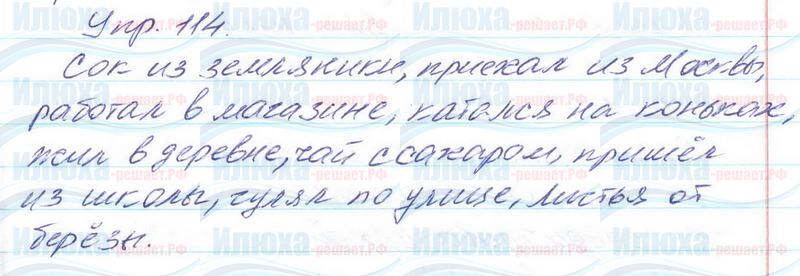 Упр. 114.
Сок из земляники, приехал из Москвы,
работал в магазине, катался на коньках,
жил в деревне, чай с сахаром, пришёл
из школы, гулял по улице, листья от
берёзы.
Илюха-решает.РФ